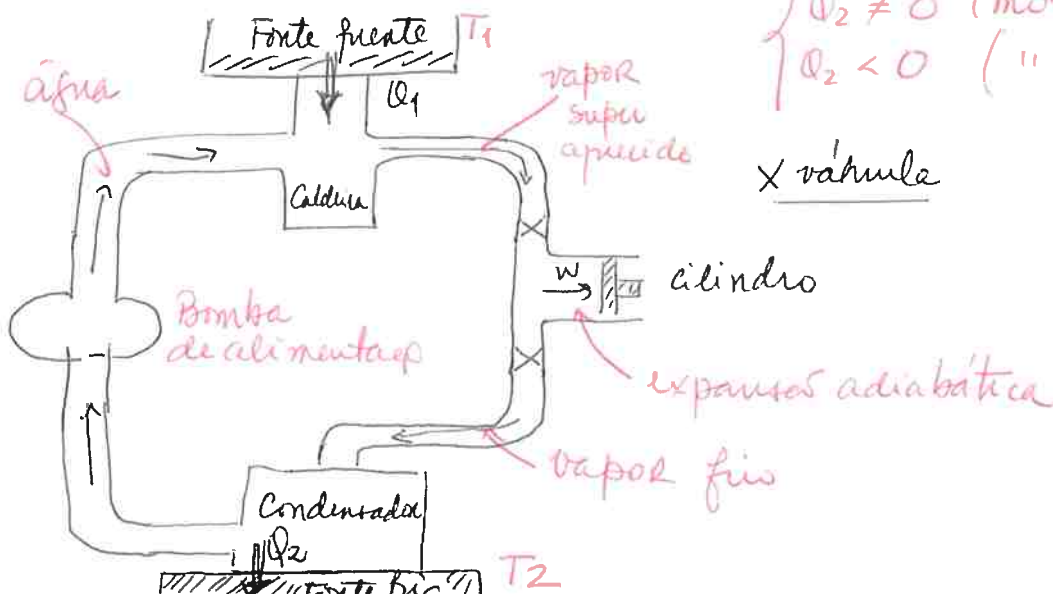 Fonte fuente T1
Q2 ≠ 0 (mo
Q2 < 0 ( "
água
Q1
vapor
super
aquecido
Caldeira
X válvula
W
cilindro
Bomba
de alimentação
expansão adiabática
vapor frio
Condensador
Q2
T2